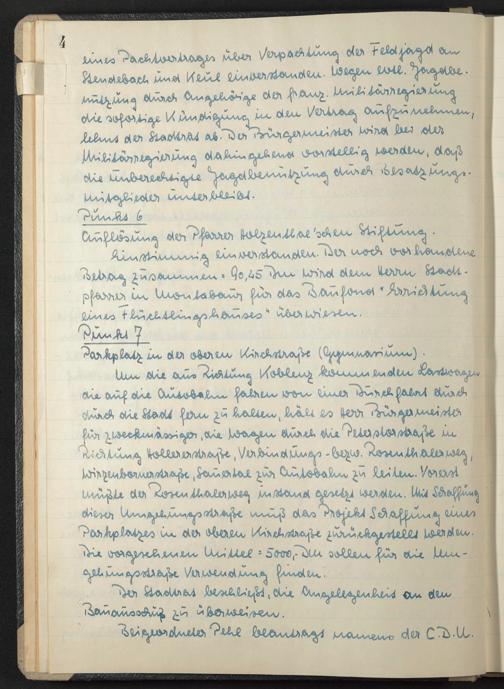 4
eines Pachtvertrages über Verpachtung der Feldjagd an
Stendebach und Keul einverstanden. Wegen evtl. Jagdbe-
nutzung durch Angehörige der franz. Militärregierung
die sofortige Kündigung in den Vertrag aufzunehmen,
lehnt der Stadtrat ab. Der Bürgermeister wird bei der
Militärregierung dahingehend vorstellig werden, daß
die unberechtigte Jagdbenützung durch Besatzungs-
mitglieder unterbleibt.
Punkt 6
Auflösung der Pfarrer Holzenthal'schen Stiftung.
Einstimmig einverstanden. Der noch vorhandene
Betrag zusammen = 90,45 DM wird dem Herrn Stadt-
pfarrer in Montabaur für das Baufond "Errichtung
eines Flüchtlingshauses" überwiesen.
Punkt 7
Parkplatz in der oberen Kirchstraße (Gymnasium).
Um die aus Richtung Koblenz kommenden Lastwagen
die auf die Autobahn fahren von einer Durchfahrt durch
durch die Stadt fern zu halten, hält es Herr Bürgermeister
für zweckmässiger, die Wagen durch die Peterstorstraße in
Richtung Hollererstraße, Verbindungs- bezw. Rosenthalerweg,
Wirzenbornerstraße, Sauertal zur Autobahn zu leiten. Vorerst
müßte der Rosenthalerweg instand gesetzt werden. Mit Schaffung
dieser Umgehungsstraße muß das Projekt Schaffung eines
Parkplatzes in der oberen Kirchstraße zurückgestellt werden.
Die vorgesehenen Mittel = 5000,- DM sollen für die Um-
gehungsstraße Verwendung finden.
Der Stadtrat beschließt, die Angelegenheit an den
Bauausschuß zu überweisen.
Beigeordneter Pehl beantragt namens der C.D.U.